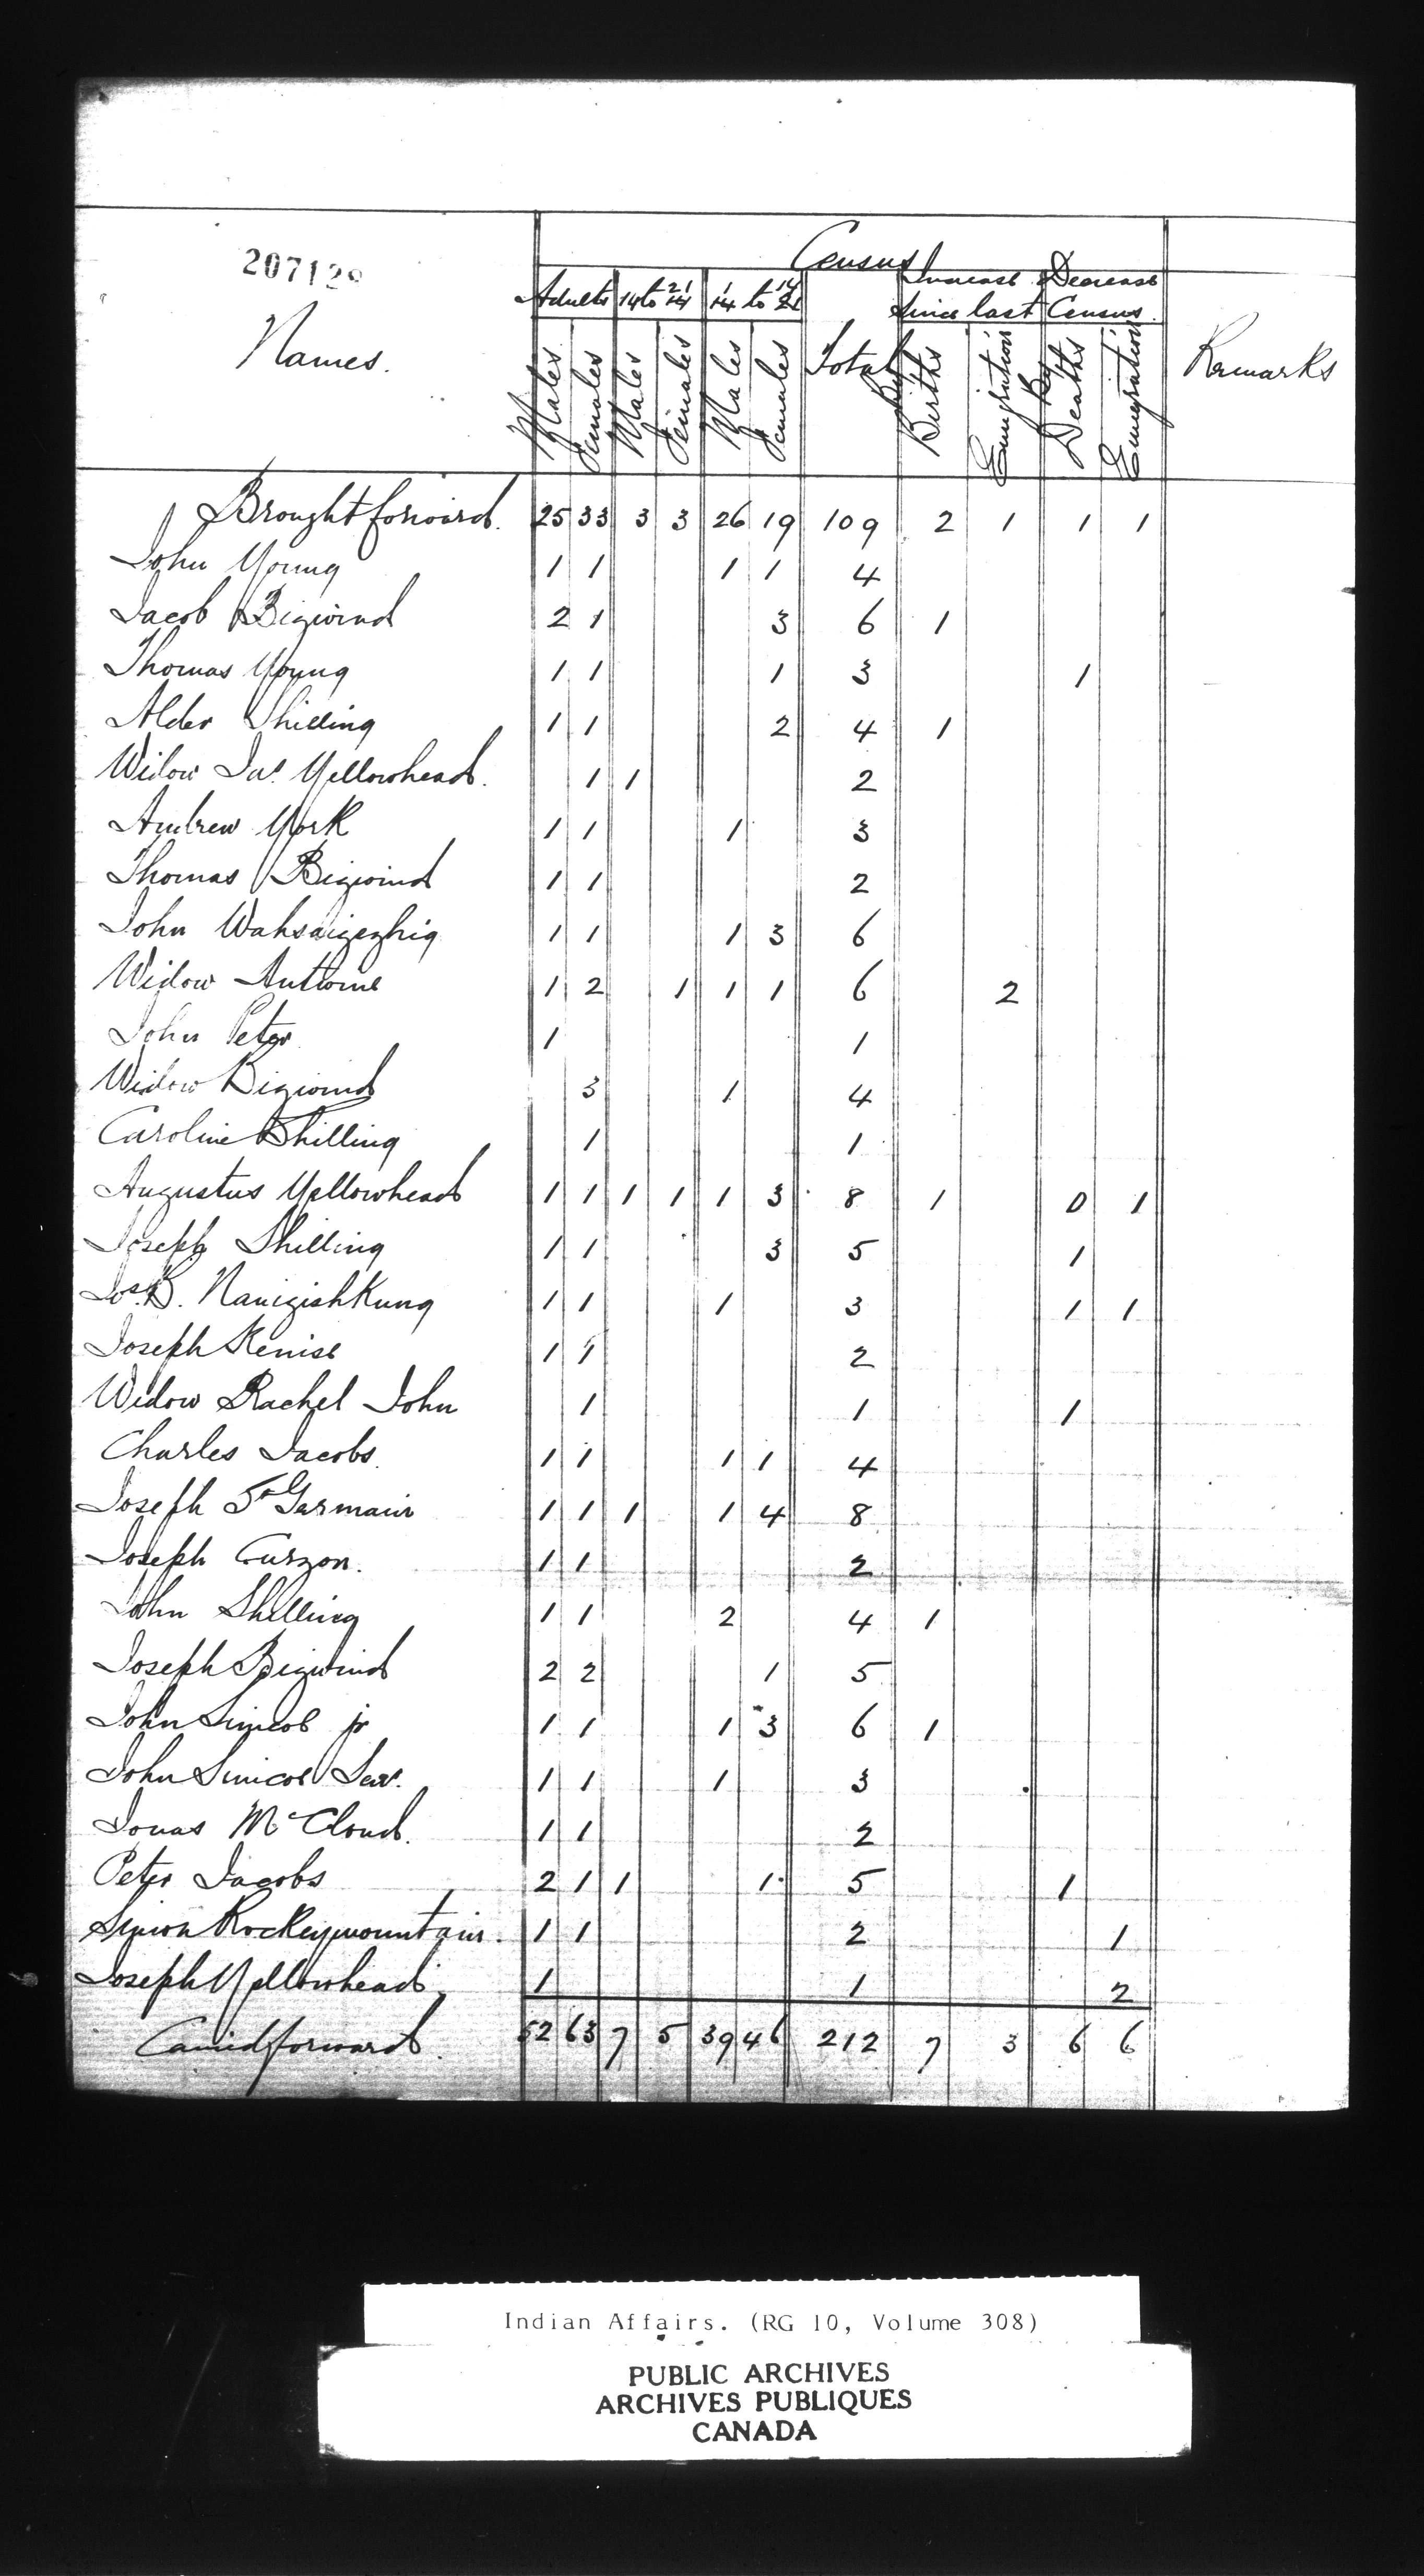 207129
Names.
Census
Adults 14 to 21 1 to 14
Increase Decrease
Since last Census.
Males Females Males Females Males Females Total By Births Emigration By Deaths Emigration
Remarks
Brought forward. 25 33 3 3 26 19 109 2 1 1 1
John Young 1 1 1 1 4
Jacob Bigwind 2 1 3 6 1
Thomas Young 1 1 1 3 1
Alder Shilling 1 1 2 4 1
Widow Jas. Yellowhead. 1 1 2
Andrew York 1 1 1 3
Thomas Bigwind 1 1 2
John Wahsaigezhig 1 1 1 3 6
Widow Antoine 1 2 1 1 1 6 2
John Peter 1 1
Widow Bigwind 3 1 4
Caroline Shilling 1 1
Augustus Yellowhead 1 1 1 1 1 3 8 1 0 1
Joseph Shilling 1 1 3 5 1
Jos. B. Nanigishkung 1 1 1 3 1 1
Joseph Kenise 1 1 2
Widow Rachel John 1 1 1
Charles Jacobs. 1 1 1 1 4
Joseph St Germain 1 1 1 1 4 8
Joseph Curzon. 1 1 2
John Shilling 1 1 2 4 1
Joseph Bigwind 2 2 1 5
John Simcoe jr 1 1 1 3 6 1
John Simcoe Senr. 1 1 1 3
Jonas McCloud. 1 1 2
Peter Jacobs 2 1 1 1 5 1
Simon Rockeymountain. 1 1 2 1
Joseph Yellowhead 1 1 2
Carried forward. 52 63 7 5 39 46 212 7 3 6 6
Indian Affairs. (RG 10, Volume 308)
PUBLIC ARCHIVES
ARCHIVES PUBLIQUES
CANADA